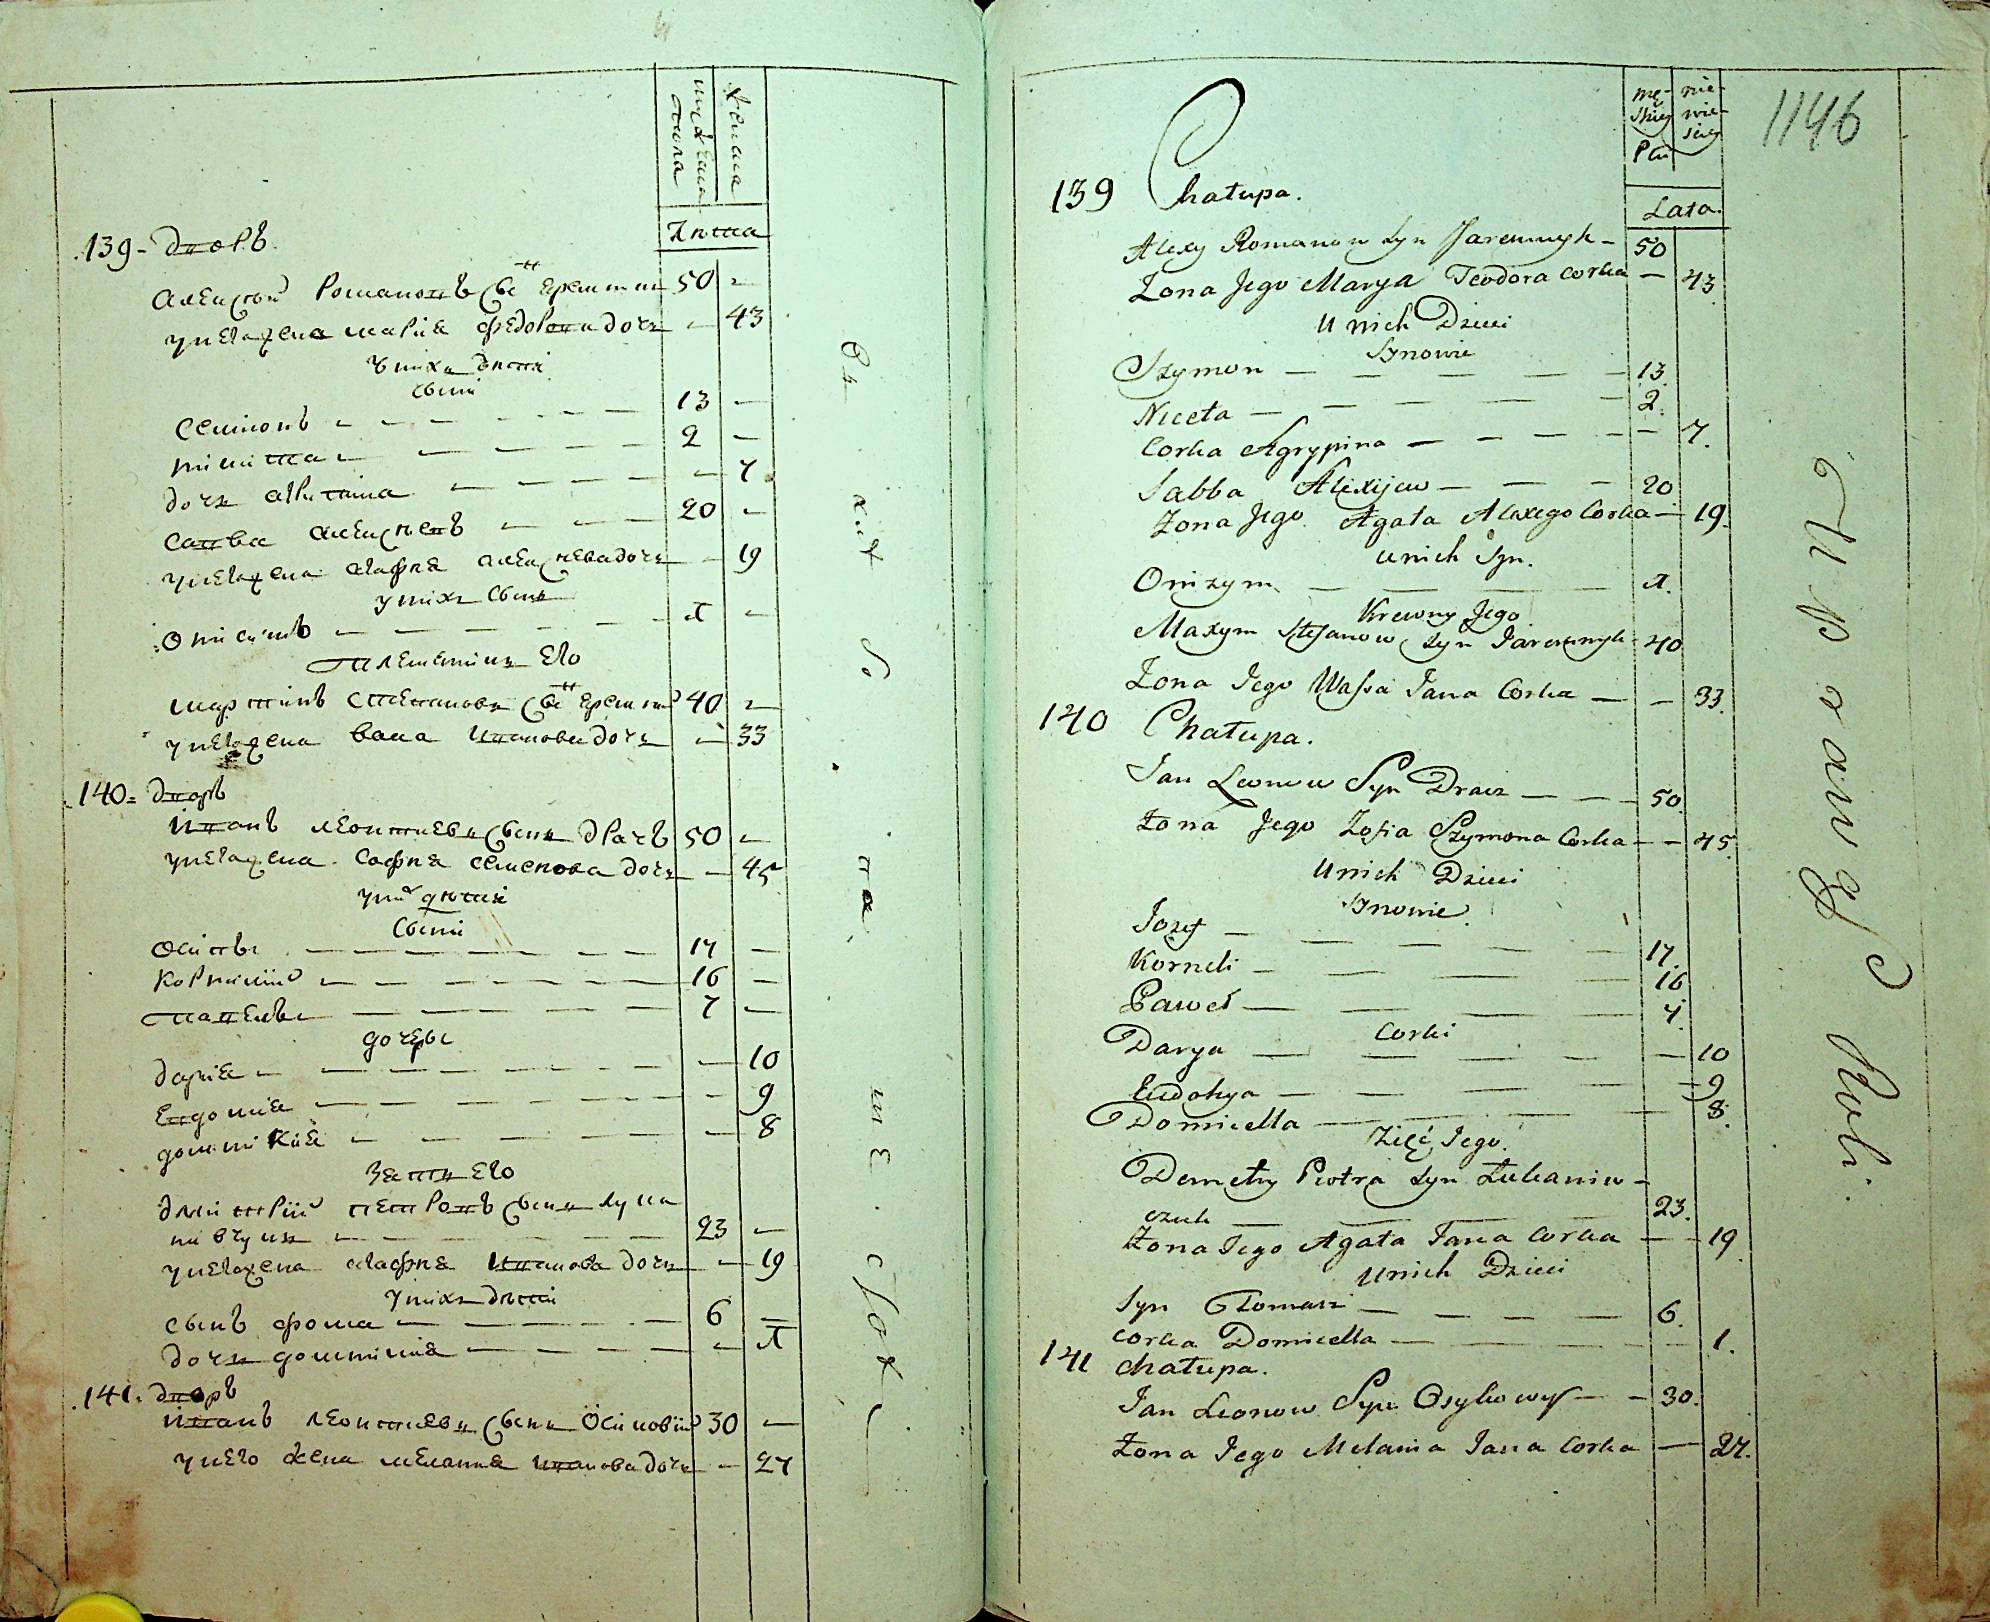 мужеска пола
женска
Лѣта
139 - дворъ
Алексѣй Романовъ Сынъ Еремии 50
у него жена Мария Федорова дочь 43
у нихъ дѣти
сыни
Семионъ 13
Никита 2
дочь Агрипина 7
Савва Алексѣевъ 20
у него жена Агафия Алексѣева дочь 19
у нихъ Сынъ
Онисимъ 1
племенникъ Его
Мартинъ Степановъ Сынъ Еремии 40
у него жена Васа Иванова дочь 33
140 = дворъ
Иванъ Леонтиевъ Сынъ Драчъ 50
у него жена София Семенова дочь 45
у них дѣти
Сыни
Осипъ 17
Корнилий 16
Павелъ 7
дочери
Дария 10
Евдокия 9
Домникия 8
Зять Его
Дмитрий Петровъ Сынъ Лука
нивчукъ 23
у него жена Агафия Иванова дочь 19
у нихъ дѣти
сынъ Фома 6
дочь Домникия 1
141. дворъ
Иванъ Леонтиевъ Сынъ Осиповий 30
у него жена Мелания Иванова дочь 27
1146
mę-
skiey
Płci
nie-
wie-
sciey
Lata.
139 Chałupa.
Alexy Romanow Syn Jaremczyk - 50
Żona Jego Marya Teodora Corka — 43
U nich Dzieci
Synowie
Szymon — — — — — 13.
Niceta — — — — — 2.
Corka Agrypina — — — — — 7.
Sabba Alexijew — — — 20
Żona Jego Agata Alexego Corka — 19.
U nich Syn.
Onizym — — — 1.
Krewny Jego
Maxym Stefanow Syn Jaremczyk - 40
Żona Jego Wassa Jana Corka — — 33.
140 Chałupa.
Jan Leonow Syn Dracz — — — 50.
Żona Jego Zofia Szymona Corka — — 45.
U nich Dzieci
Synowie
Jozef — — — — — 17.
Korneli — — — — 16
Paweł — — — — 7.
Corki
Darya — — — — — 10
Eudokya — — — — 9
Domicella — — — — 8.
Zięć Jego.
Demetry Piotra Syn Łukaniw -
czuk — — — — 23.
Żona Jego Agata Jana Corka — — 19
U nich Dzieci
Syn Tomasz — — — — 6.
Corka Domicella — — — — 1.
141 Chałupa.
Jan Leonow Syn Osykowy — — 30.
Żona Jego Melania Jana Corka — 27.